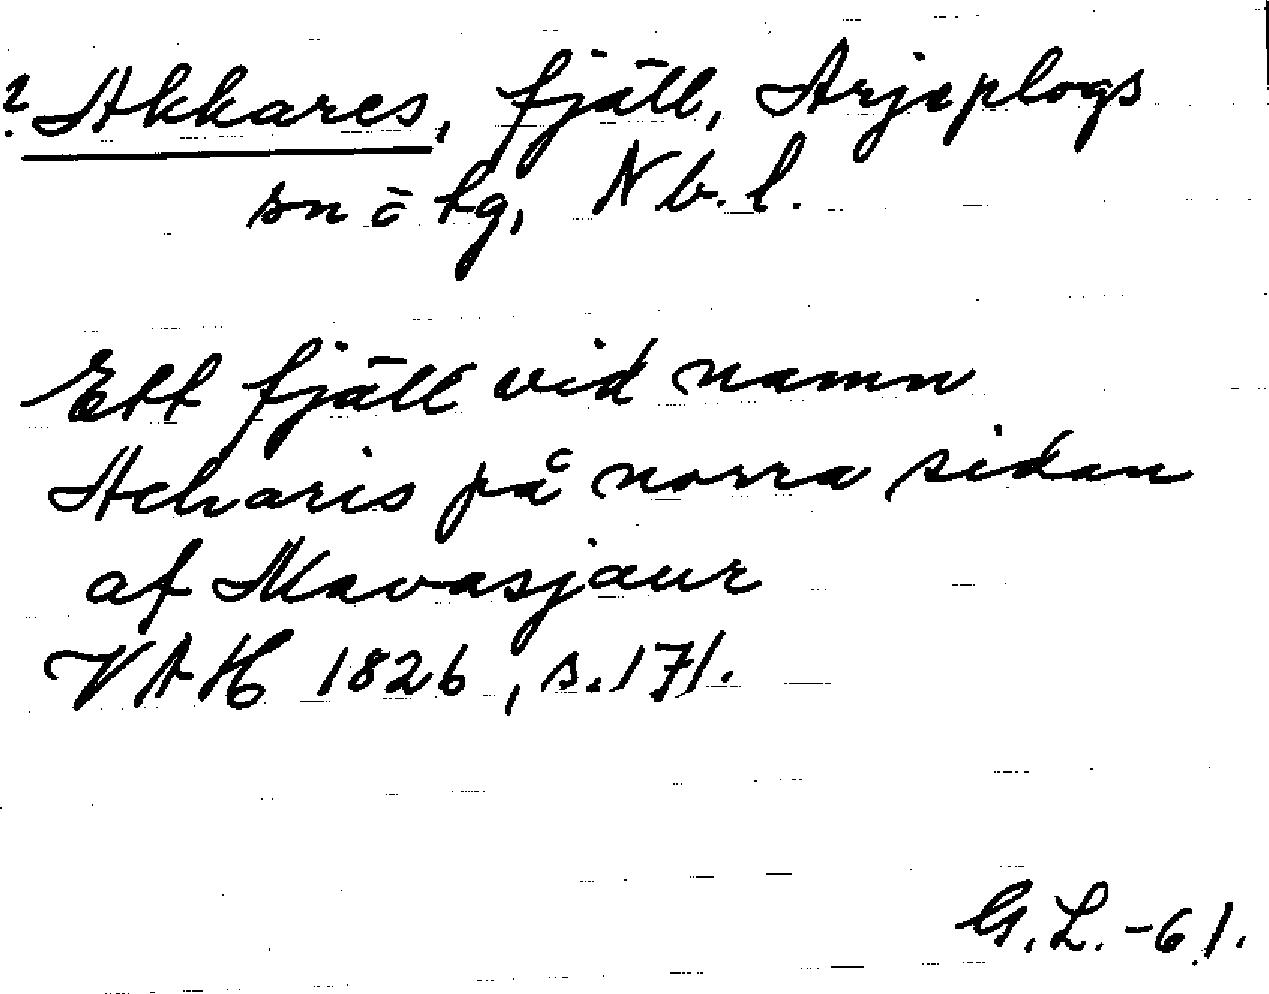 ? Akkares, fjäll, Arjeplogs
sn o hg, Nb.l.
Ett fjäll vid namn
Acharis på norra sidan
af Mavasjaur
VAH 1826, s. 171.
G.L. -61.